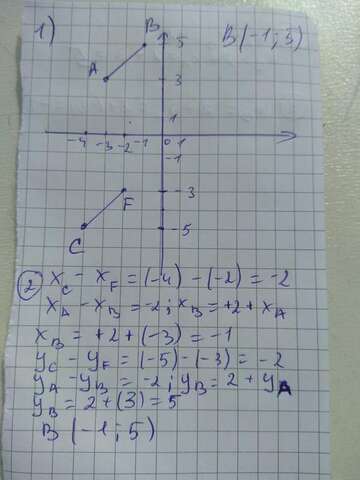 1) B 5 B(-1;5)
A 3
1
-4 -3 -2 -1 0 1
-1
F -3
C -5
② x_C - x_F = (-4) - (-2) = -2
x_A - x_B = -2; x_B = +2 + x_A
x_B = +2 + (-3) = -1
y_C - y_F = (-5) - (-3) = -2
y_A - y_B = -2; y_B = 2 + y_A
y_B = 2 + (3) = 5
B (-1; 5)